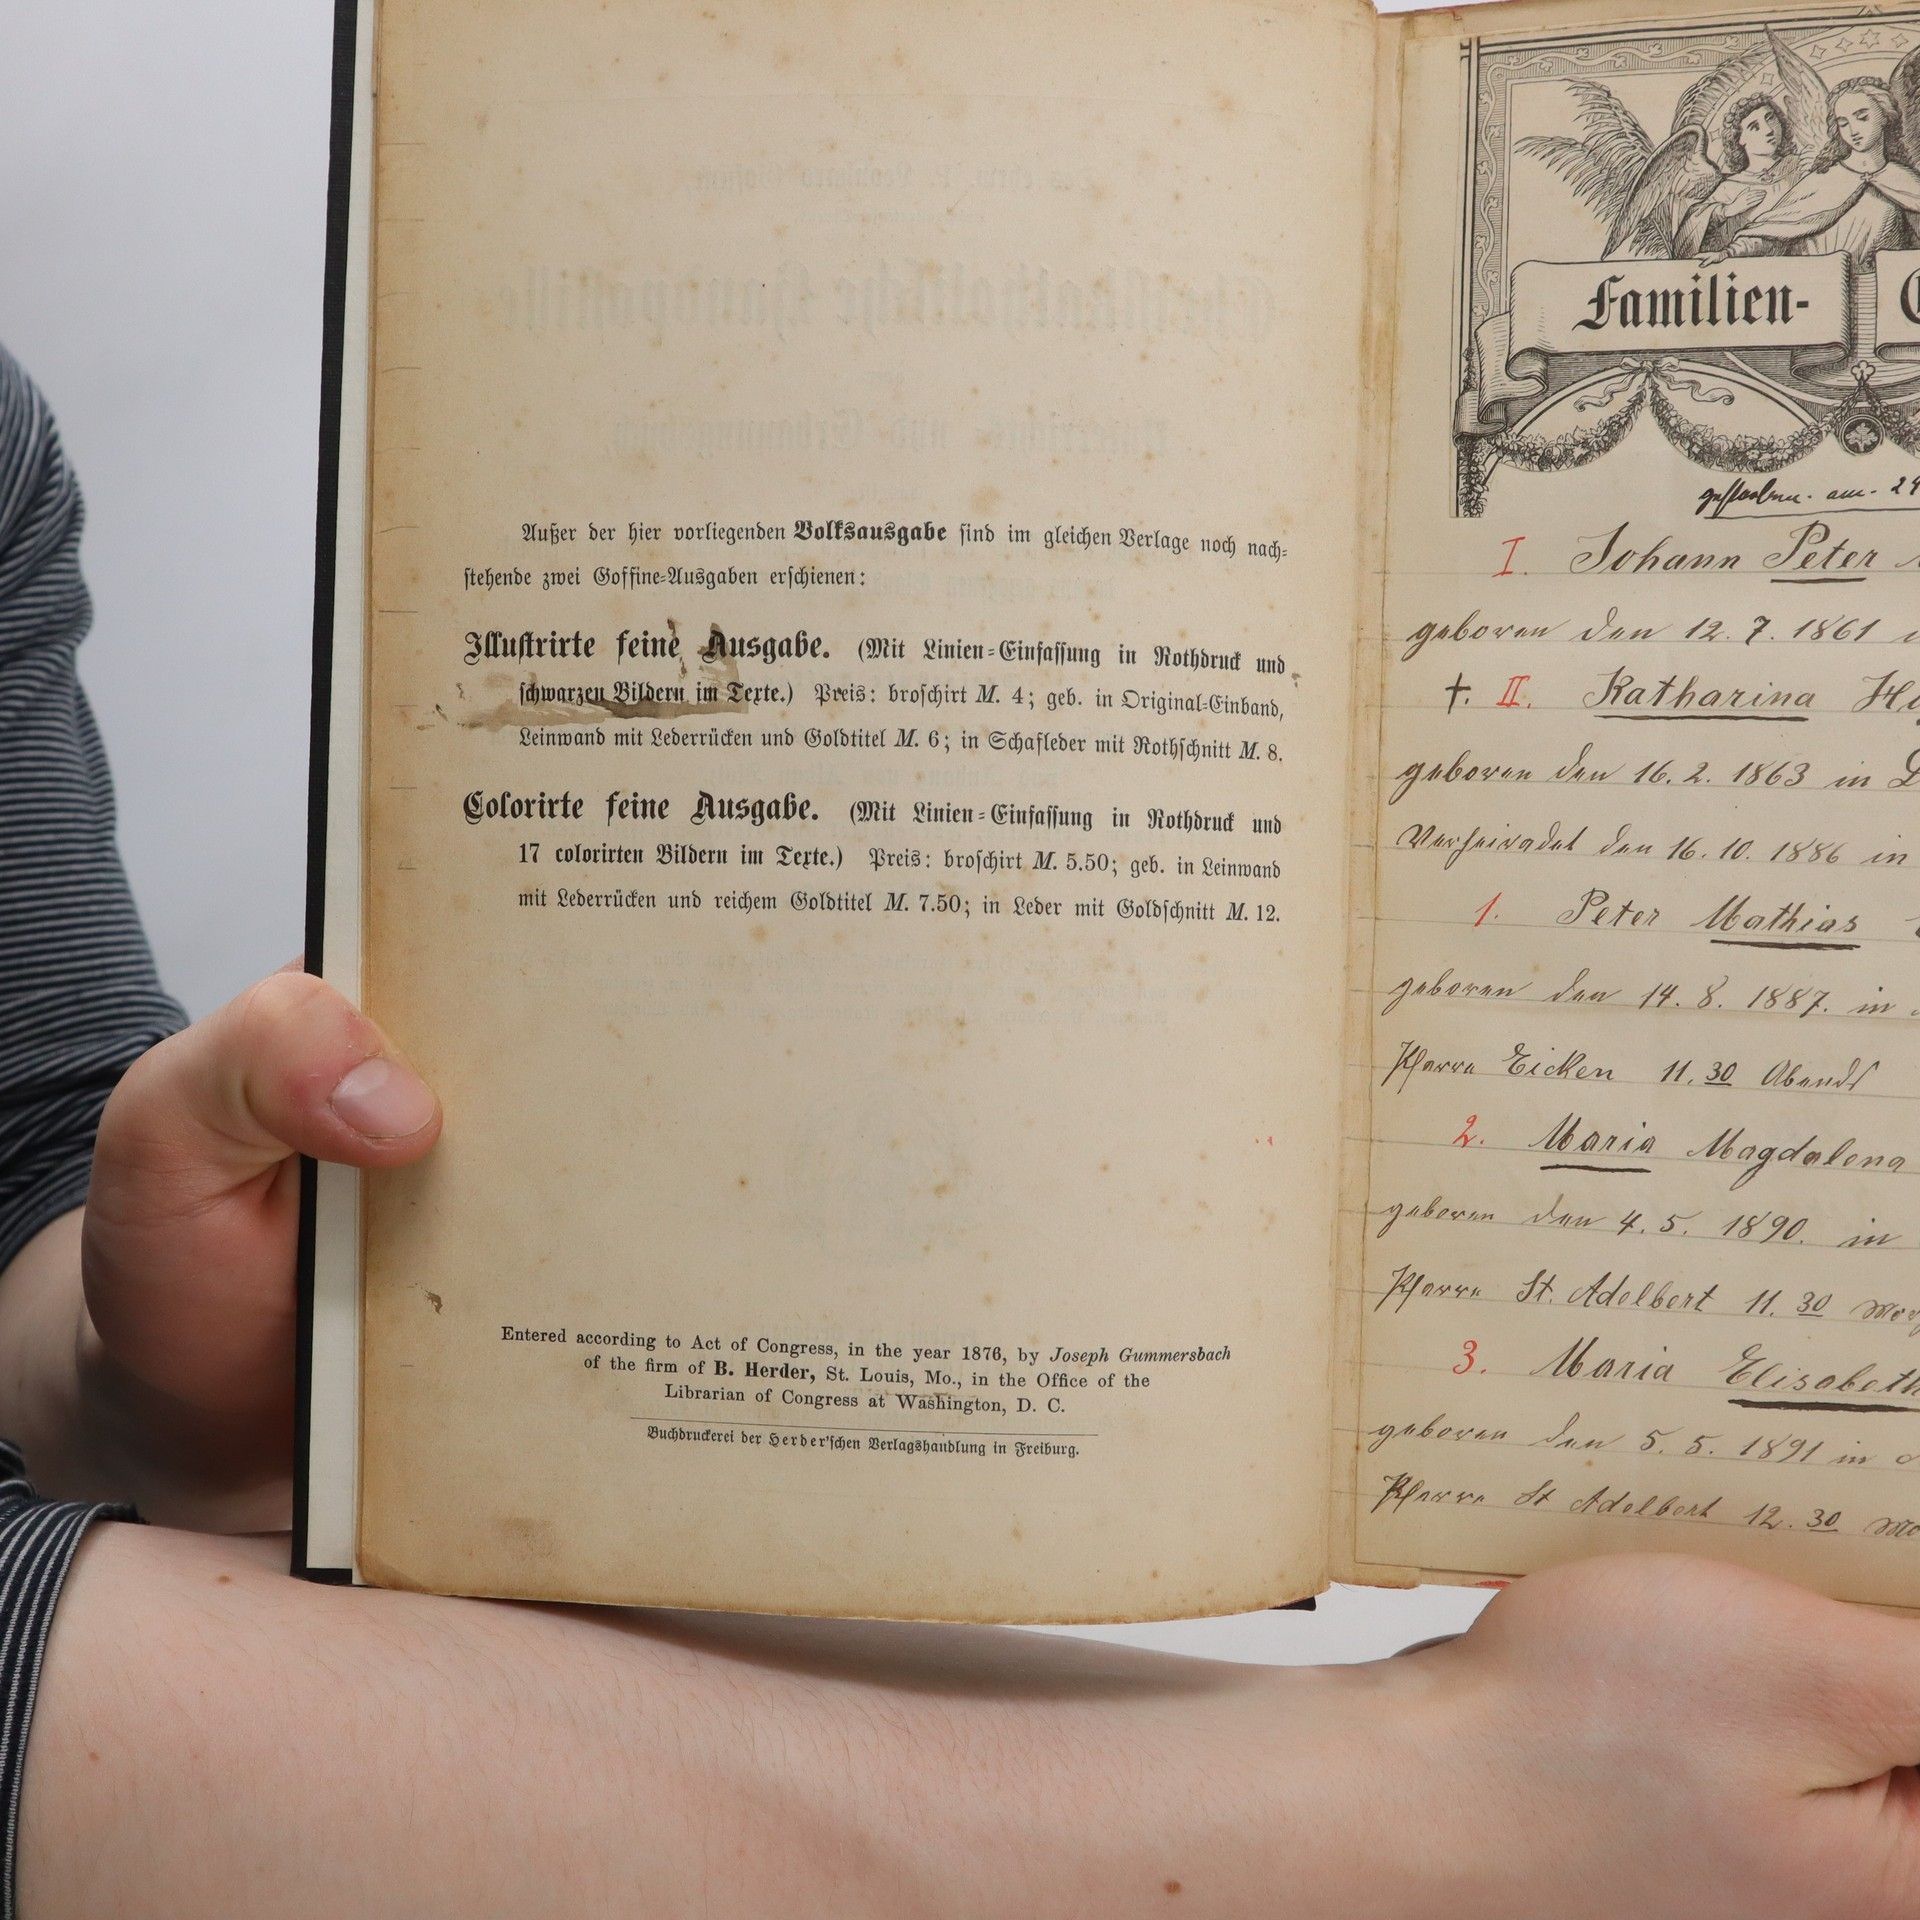 Außer der hier vorliegenden Volksausgabe sind im gleichen Verlage noch nach-
stehende zwei Goffine-Ausgaben erschienen:
Illustrirte feine Ausgabe. (Mit Linien-Einfassung in Rothdruck und
schwarzen Bildern im Texte.) Preis: broschirt M. 4; geb. in Original-Einband,
Leinwand mit Lederrücken und Goldtitel M. 6; in Schafleder mit Rothschnitt M. 8.
Colorirte feine Ausgabe. (Mit Linien-Einfassung in Rothdruck und
17 colorirten Bildern im Texte.) Preis: broschirt M. 5.50; geb. in Leinwand
mit Lederrücken und reichem Goldtitel M. 7.50; in Leder mit Goldschnitt M. 12.
Entered according to Act of Congress, in the year 1876, by Joseph Gummersbach
of the firm of B. Herder, St. Louis, Mo., in the Office of the
Librarian of Congress at Washington, D. C.
Buchdruckerei der Herder'schen Verlagshandlung in Freiburg.
Familien-
gestorben am 24
I. Johann Peter
geboren den 12. 7. 1861
†. II. Katharina
geboren den 16. 2. 1863 in
Verheiradet den 16. 10. 1886 in
1. Peter Mathias
geboren den 14. 8. 1887. in
Pfarre Eicken 11.30 Abends
2. Maria Magdalena
geboren den 4. 5. 1890. in
Pfarre St. Adelbert 11.30
3. Maria Elisabeth
geboren den 5. 5. 1891 in
Pfarre St Adelbert 12.30